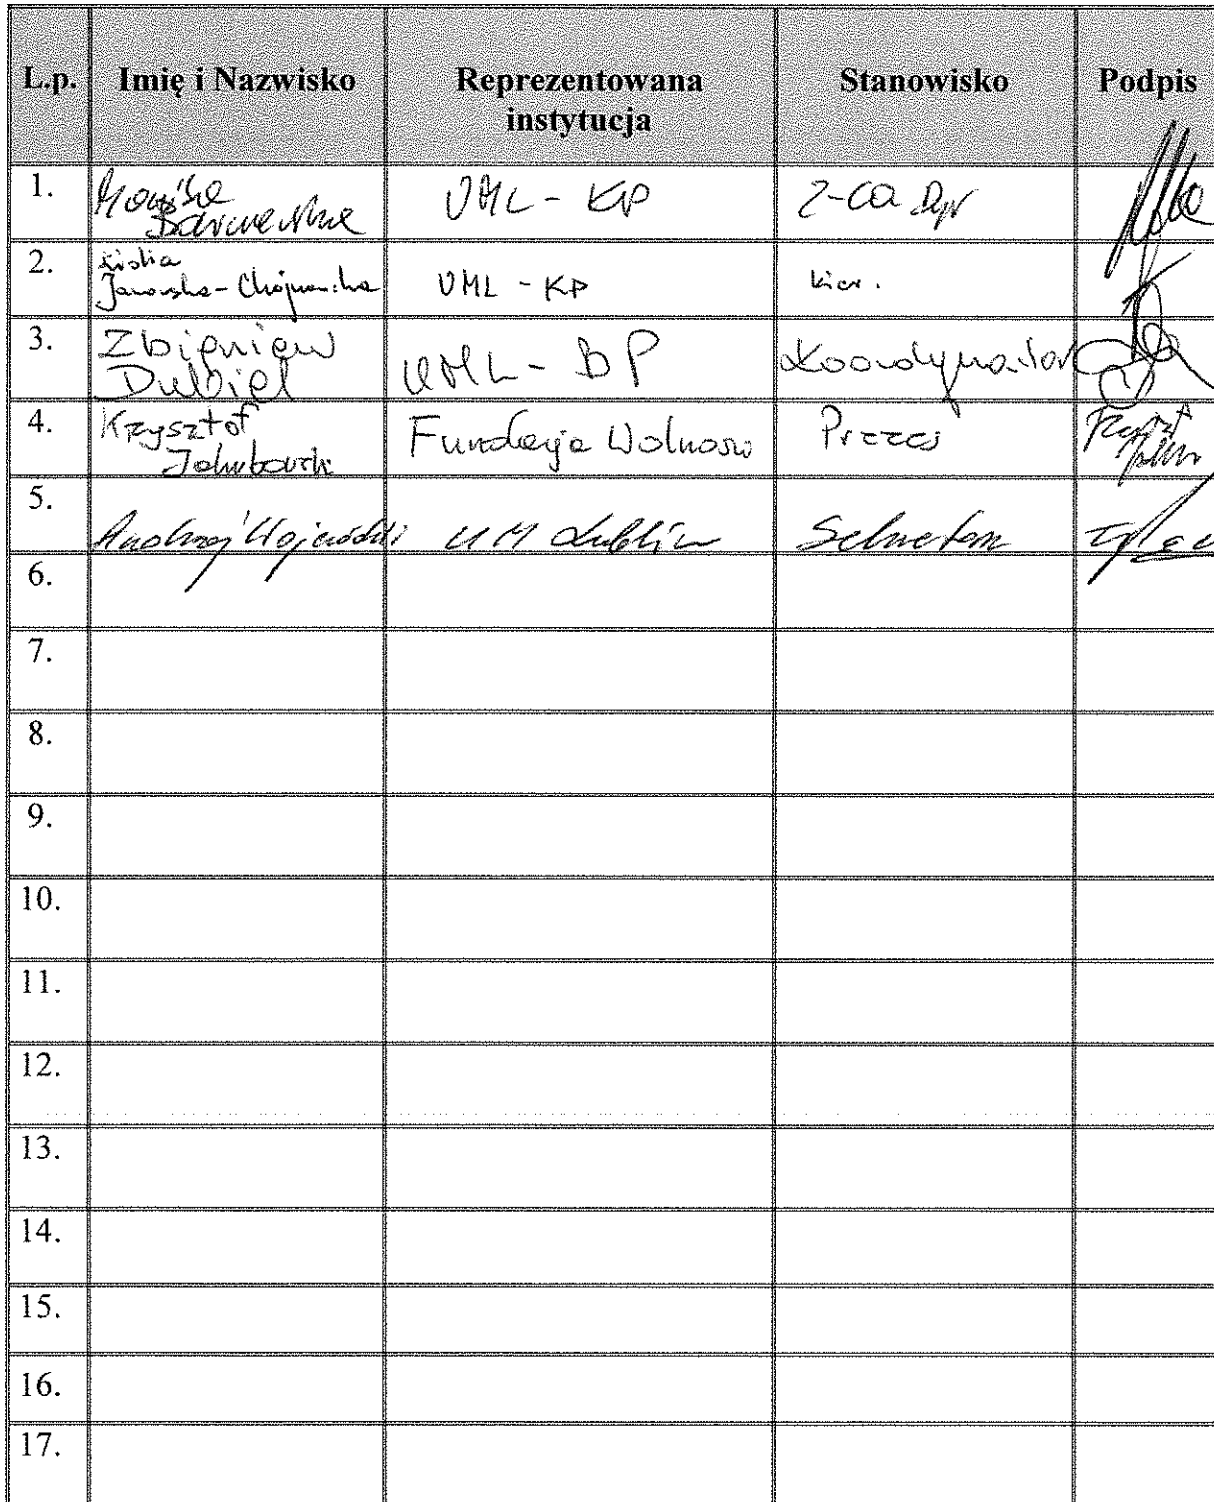 L.p. Imię i Nazwisko Reprezentowana instytucja Stanowisko Podpis
1. Monika UML - KP Z-ca Dyr
2. Janowska-Chojnacka UML - KP kier.
3. Zbigniew Dubiel UML - BP Koordynator
4. Krzysztof Jakubowski Fundacja Wolności Prezes
5. Andrzej Wojewódzki UM Lublin Sekretarz
6.
7.
8.
9.
10.
11.
12.
13.
14.
15.
16.
17.